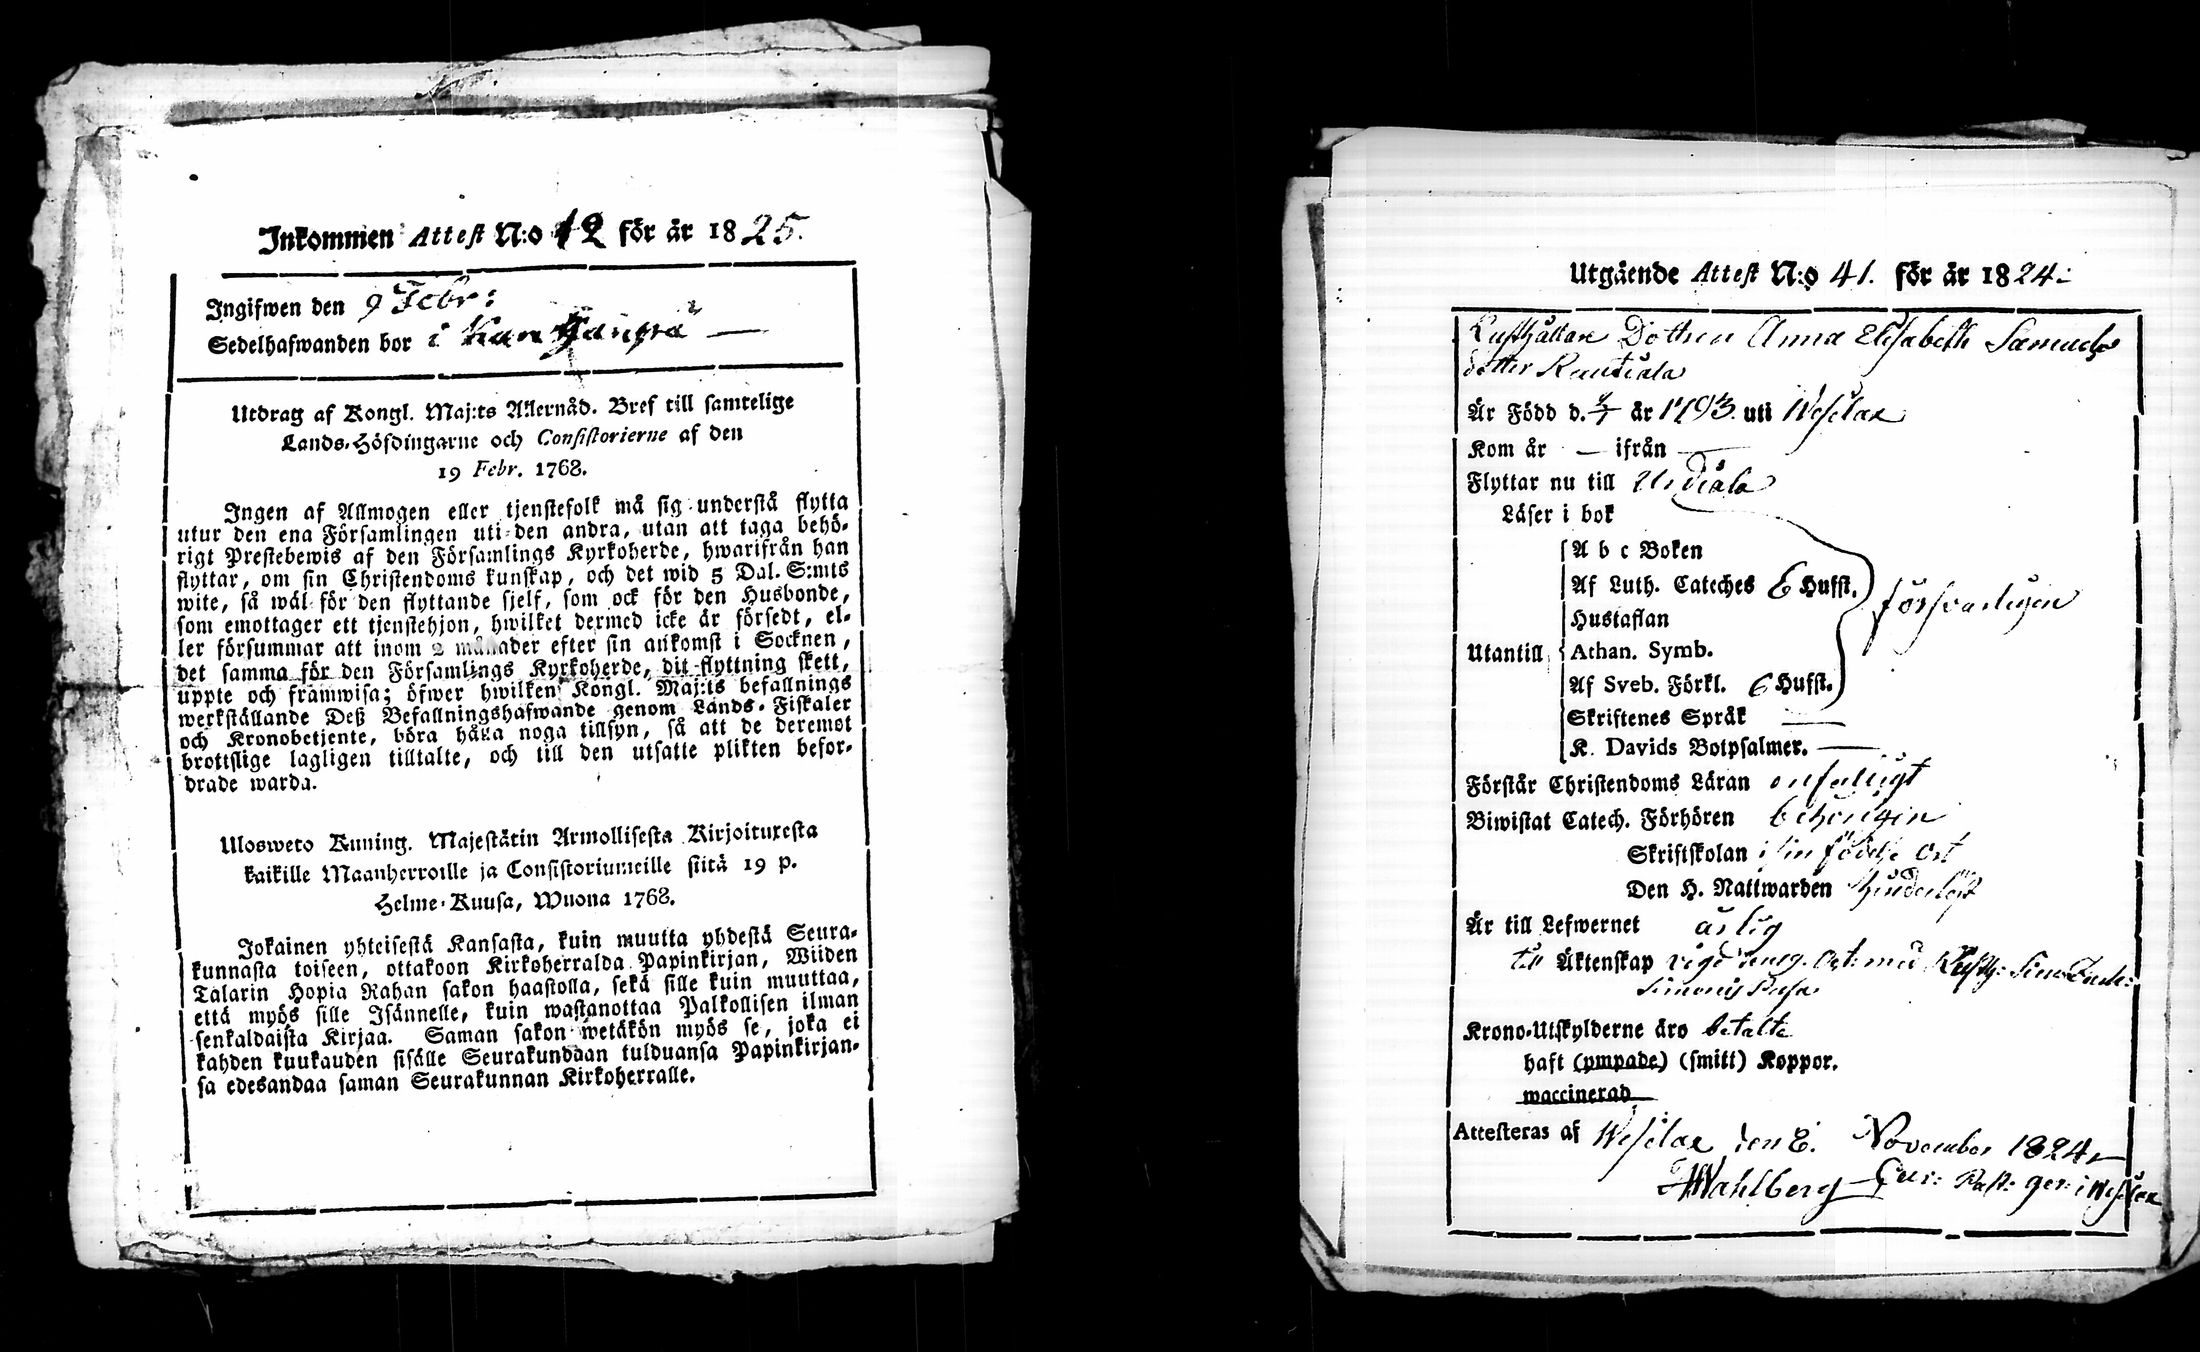 Inkommen Attest N:o 12 för år 1825.
Ingifwen den 9 Febr:
Sedelhafwanden bor i Kankjangrä —
Utdrag af Kongl. Maj:ts Allernåd. Bref till samtelige
Lands-Höfdingarne och Consistorierne af den
19 Febr. 1768.
Ingen af Allmogen eller tjenstefolk må sig understå flytta
utur den ena Församlingen uti den andra, utan att taga behö-
rigt Prestebewis af den Församlings Kyrkoherde, hwarifrån han
flyttar, om sin Christendoms kunskap, och det wid 5 Dal. S:mts
wite, så wäl för den flyttande sjelf, som ock för den Husbonde,
som emottager ett tjenstehjon, hwilket dermed icke är försedt, el-
ler försummar att inom 2 månader efter sin ankomst i Socknen,
det samma för den Församlings Kyrkoherde, dit flyttning skett,
uppte och framwisa; öfwer hwilken Kongl. Maj:ts befallnings
werkställande Deß Befallningshafwande genom Lands-Fiskaler
och Kronobetjente, böra hålla noga tillsyn, så att de deremot
brottslige lagligen tilltalte, och till den utsatte plikten befor-
drade warda.
Ulosweto Kuning. Majestätin Armollisesta Kirjoituxesta
kaikille Maanherroille ja Consistoriumeille siitä 19 p.
Helme-Kuusa, Wuona 1768.
Jokainen yhteisestä Kansasta, kuin muutta yhdestä Seura-
kunnasta toiseen, ottakoon Kirkoherralda Papinkirjan, Wiiden
Talarin Hopia Rahan sakon haastolla, sekä sille kuin muuttaa,
että myös sille Isännelle, kuin wastanottaa Palkollisen ilman
senkaldaista Kirjaa. Saman sakon wetäkön myös se, joka ei
kahden kuukauden sisälle Seurakundaan tulduansa Papinkirjan-
sa edesandaa saman Seurakunnan Kirkoherralle.
Utgående Attest N:o 41. för år 1824:
Rusthållare Dottren Anna Elisabeth Samuels
dotter Rautiala
Är Född d. 4/7 år 1793 uti Wesilax
Kom år — ifrån —
Flyttar nu till Urdiala
Läser i bok
A b c Boken
Af Luth. Cateches 6 Hufst.
Hustaflan
Utantill Athan. Symb.
Af Sveb. Förkl. 6 Hufst.
försvarligen
Skriftenes Språk —
K. Davids Botpsalmer. —
Förstår Christendoms Läran enfalligt
Biwistat Catech. Förhören behörigen
Skriftskolan i sin födelse Ort
Den H. Nattwarden
Är till Lefwernet ärlig
till Äktenskap vigd med Rusth:
Simonis
Krono-Utskylderne äro betalte
haft (ympade) (smitt) Koppor.
waccinerad
Attesteras af Wesilax den 8. November 1824
Wahlberg Cur: Past: ger: i Wesilax